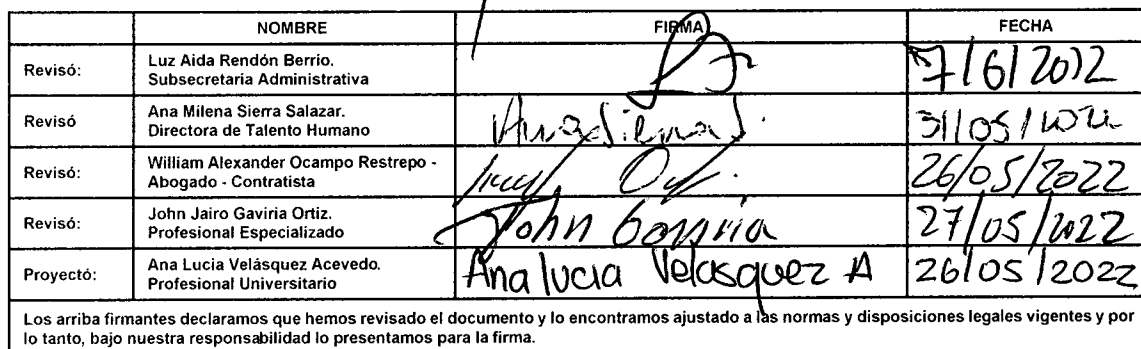 NOMBRE FIRMA FECHA
Revisó: Luz Aida Rendón Berrio.
Subsecretaria Administrativa
7/6/2022
Revisó Ana Milena Sierra Salazar.
Directora de Talento Humano
Ana Sierra S. 31/05/2022
Revisó: William Alexander Ocampo Restrepo -
Abogado - Contratista
26/05/2022
Revisó: John Jairo Gaviria Ortiz.
Profesional Especializado
John Gaviria 27/05/2022
Proyectó: Ana Lucia Velásquez Acevedo.
Profesional Universitario
Ana lucia Velasquez A 26/05/2022
Los arriba firmantes declaramos que hemos revisado el documento y lo encontramos ajustado a las normas y disposiciones legales vigentes y por
lo tanto, bajo nuestra responsabilidad lo presentamos para la firma.